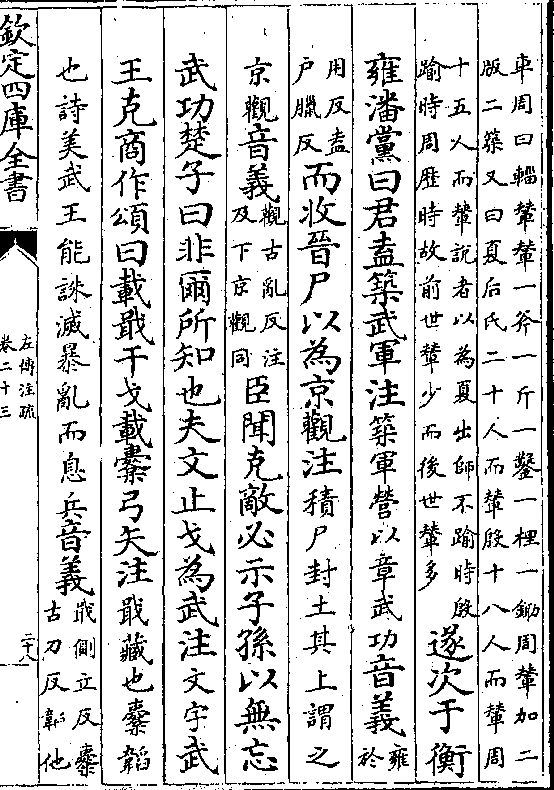 車周曰輜輦輦一斧一斤一鑿一梩一鋤周輦加二
版二築又曰夏后氏二十人而輦殷十八人而輦周
十五人而輦說者以為夏出師不踰時殷
踰時周歷時故前世輦少而後世輦多
遂次于衡
雍潘黨曰君盍築武軍注築軍營以章武功音義
雍
於
用反盍
户臘反
而收晉尸以為京觀注積尸封土其上謂之
京觀音義
觀古亂反注
及下京觀同
臣聞克敵必示子孫以無忘
武功楚子曰非爾所知也夫文止戈為武注文字武
王克商作頌曰載戢干戈載櫜弓矢注戢藏也櫜韜
也詩美武王能誅滅暴亂而息兵音義
戢側立反櫜
古刀反韜他
欽定四庫全書
左傳注疏
卷二十三
二十八